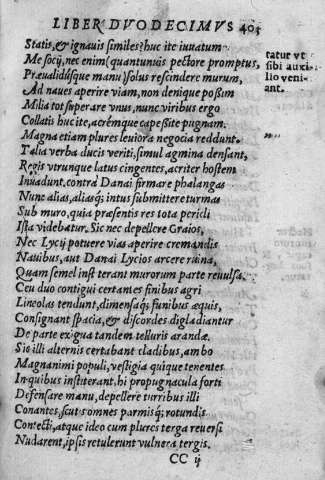 LIBER DVODECIMVS 405
Statis, & ignauis similes? huc ite iuuatum
Me socij, nec enim (quantumuis pectore promptus,
Præualidusque manu) solus rescindere murum,
Ad naues aperire viam, non denique possim
Milia tot superare vnus, nunc viribus ergo
Collatis huc ite, acrémque capessite pugnam.
Magna etiam plures leuiora negocia reddunt.
Talia verba ducis veriti, simul agmina densant,
Regis vtrunque latus cingentes, acriter hostem
Inuadunt, contrà Danai firmare phalangas
Nunc alias, aliasq́; intus submittere turmas
Sub muro, quia præsentis res tota pericli
Ista videbatur. Sic nec depellere Graios,
Nec Lycij potuere vias aperire cremandis
Nauibus, aut Danai Lycios arcere ruina,
Quam semel inst terant murorum parte reuulsa.
Ceu duo contigui certantes finibus agri
Lineolas tendunt, dimensaq́; funibus æquis,
Consignant spacia, & discordes digladiantur
De parte exigua tandem telluris arandæ.
Sic illi alternis certabant cladibus, ambo
Magnanimi populi, vestigia quique tenentes
In quibus institerant, hi propugnacula forti
Defensare manu, depellere turribus illi
Conantes, scutis omnes parmisq́; rotundis
Contecti, atque ideo cum plures terga reuersi
Nudarent, ipsis retulerunt vulnera tergis.
CC ij
tatur vt
sibi auxi-
lio veni-
ant.
„